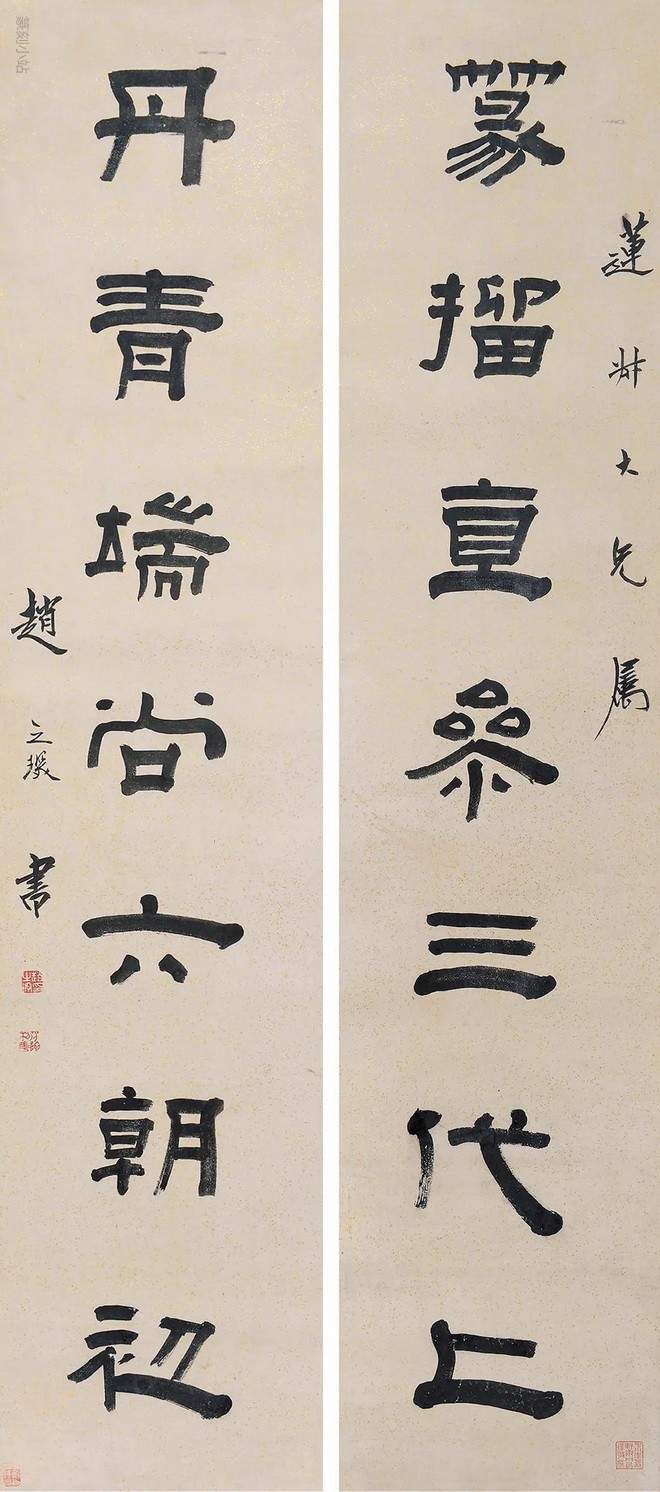 蓮 大兄屬
篆㨨直參三代上
丹青端尚六朝初
趙之琛書
篆刻小站